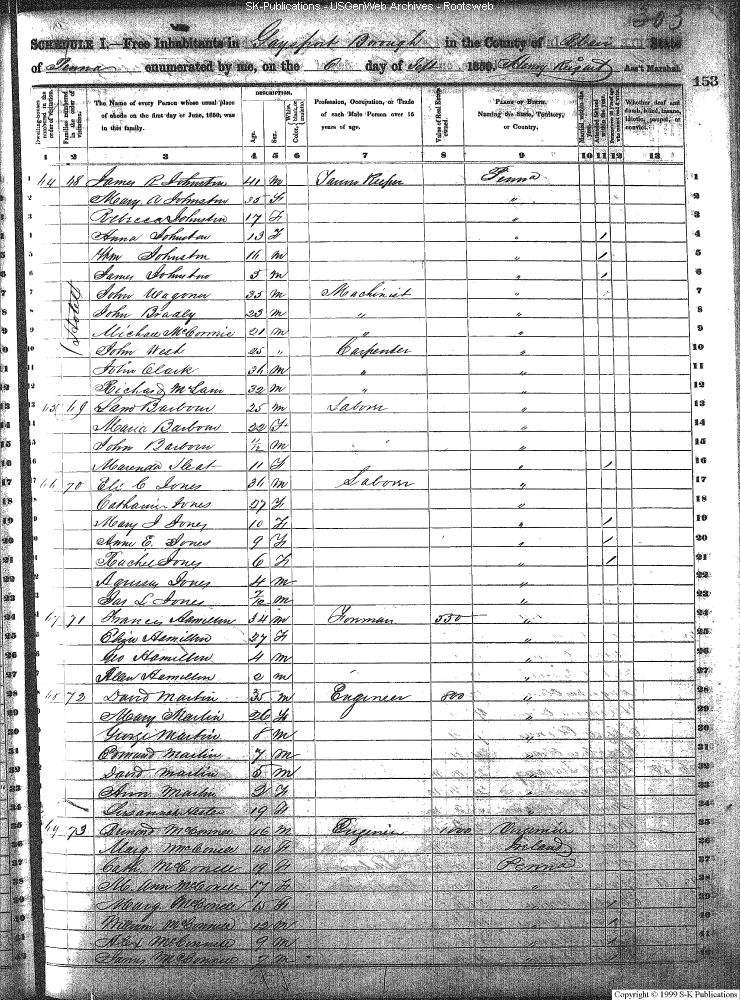 SK-Publications - USGenWeb Archives - Rootsweb
303
SCHEDULE I.—Free Inhabitants in Gaysport Borough in the County of Blair State
of Penna enumerated by me, on the 6 day of Sept 1850. Henry Ass't Marshal.
153
Dwelling-houses numbered in the order of visitation.
Families numbered in the order of visitation.
The Name of every Person whose usual place of abode on the first day of June, 1850, was in this family.
DESCRIPTION.
Age.
Sex.
Color,
Profession, Occupation, or Trade of each Male Person over 15 years of age.
Value of Real Estate owned.
PLACE OF BIRTH. Naming the State, Territory, or Country.
Married within the year.
Attended School within the year.
Whether deaf and dumb, blind, insane, idiotic, pauper, or convict.
1 2 3 4 5 6 7 8 9 10 11 12 13
64 68 James R Johnston 41 m Tavern Keeper Penna 1
Mary A Johnston 35 F " 2
Rebecca Johnston 17 F " 3
Anna Johnston 13 F " / 4
Wm Johnston 16 m " / 5
James Johnston 5 m " / 6
John Wagoner 35 m Machinist " 7
(Hotel)
John Bradly 23 m " " 8
Michael McCormic 21 m " " 9
John West 25 " Carpenter " 10
John Clark 36 m " " 11
Richard McLain 32 m " " 12
65 69 Saml Barbour 25 m Laborer " 13
Maria Barbour 22 F " 14
John Barbour m " 15
Marenda 11 F " / 16
66 70 Eli C Jones 36 m Laborer " 17
Catharine Jones 27 F " 18
Mary J Jones 10 F " / 19
Ann E. Jones 9 F " / 20
Rachel Jones 6 F " / 21
Jones 4 m " 22
Jas L Jones m " 23
67 71 Francis Hamillin 34 m Forman 550 " 24
Eliza Hamillin 27 F " 25
Geo Hamillin 4 m " 26
Allen Hamillin 2 m " 27
68 72 David Martin 35 m Engineer 800 " 28
Mary Martin 26 F " 29
George Martin 8 m " 30
Edmund Martin 7 m " 31
David Martin 5 m " 32
Ann Martin 3 F " 33
Susannah 19 F " 34
69 73 McConnel 46 m Engineer 1000 Virginia 35
Marg McConnel 40 F Ireland 36
Cath McConnel 19 F Penna 37
M. Ann McConnel 17 F " 38
Marg. McConnel 15 F " / 39
William McConnel 12 m " / 40
Alex McConnel 9 m " / 41
James McConnel 7 m " / 42
Copyright © 1999 S-K Publications